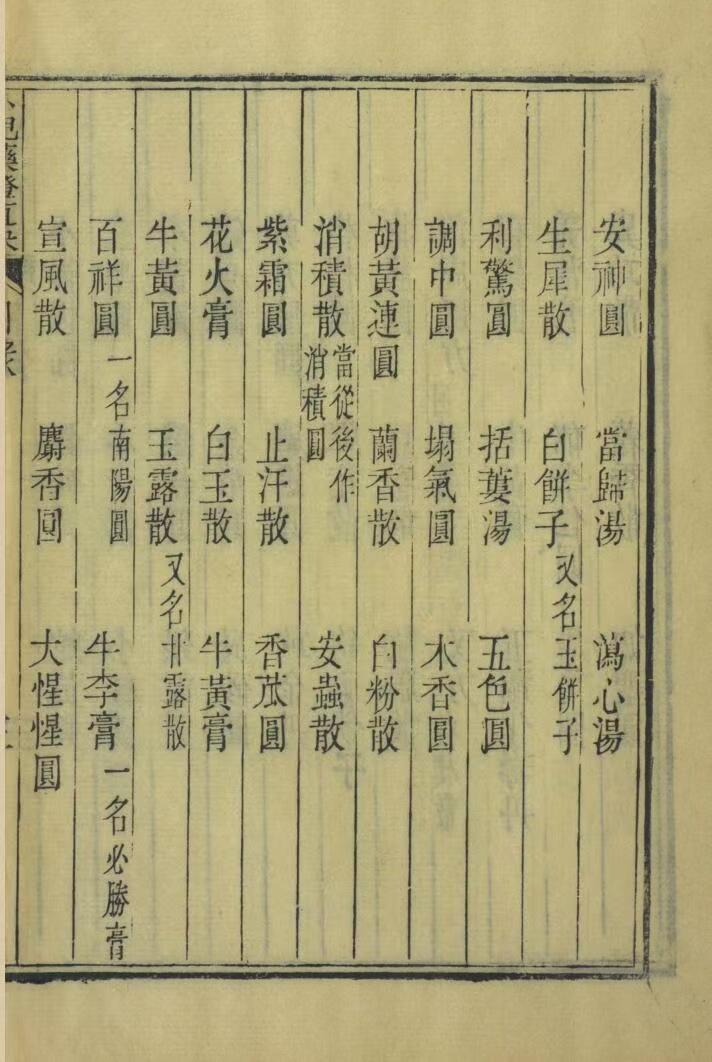 安神圓 當歸湯 瀉心湯
生犀散 白餅子又名玉餅子
利驚圓 括蔞湯 五色圓
調中圓 塌氣圓 木香圓
胡黃連圓 蘭香散 白粉散
消積散當從後作消積圓 安蟲散
紫霜圓 止汗散 香瓜圓
花火膏 白玉散 牛黃膏
牛黃圓 玉露散又名甘露散
百祥圓一名南陽圓 牛李膏一名必勝膏
宣風散 麝香圓 大惺惺圓